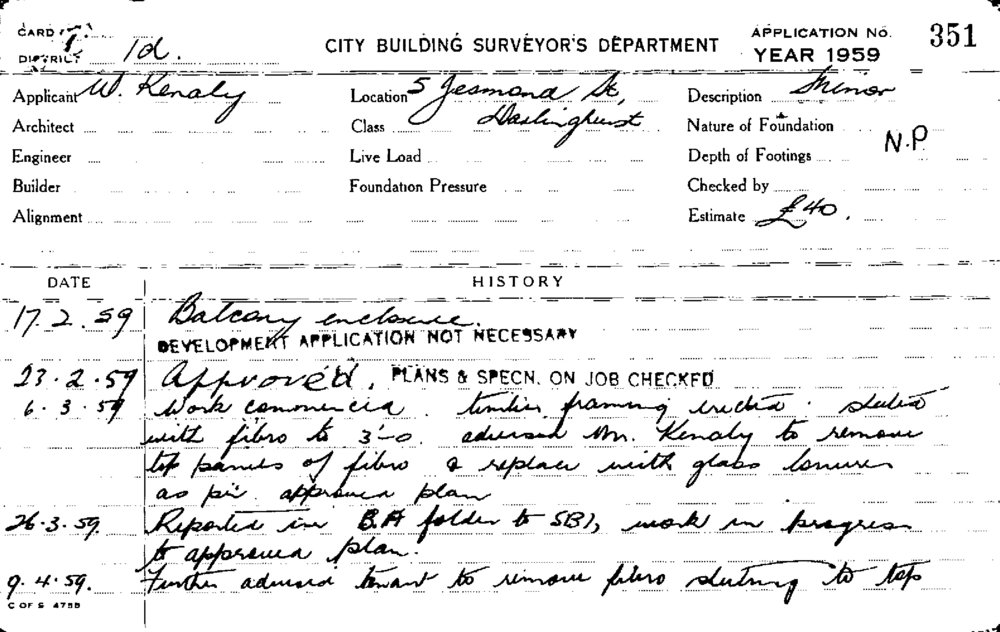 CARD 1.
DISTRICT 1d.
CITY BUILDING SURVEYOR'S DEPARTMENT
APPLICATION No. 351
YEAR 1959
Applicant W. Kenaly
Location 5 Jesmond St,
Description Minor
Architect
Class Darlinghurst
Nature of Foundation
Engineer
Live Load
Depth of Footings N.P
Builder
Foundation Pressure
Checked by
Alignment
Estimate £40.
DATE HISTORY
17.2.59 Balcony enclosure.
DEVELOPMENT APPLICATION NOT NECESSARY
23.2.59 Approved. PLANS & SPECN. ON JOB CHECKED
6.3.59 Work commenced. timber framing erected. sheeted
with fibro to 3'-0. advised Mr. Kenaly to remove
top panels of fibro & replace with glass louvres
as per approved plan
26.3.59. Reported in B.A folder to SBI, work in progress
to approved plan.
9.4.59. Further advised tenant to remove fibro sheeting to top
C OF S 475B